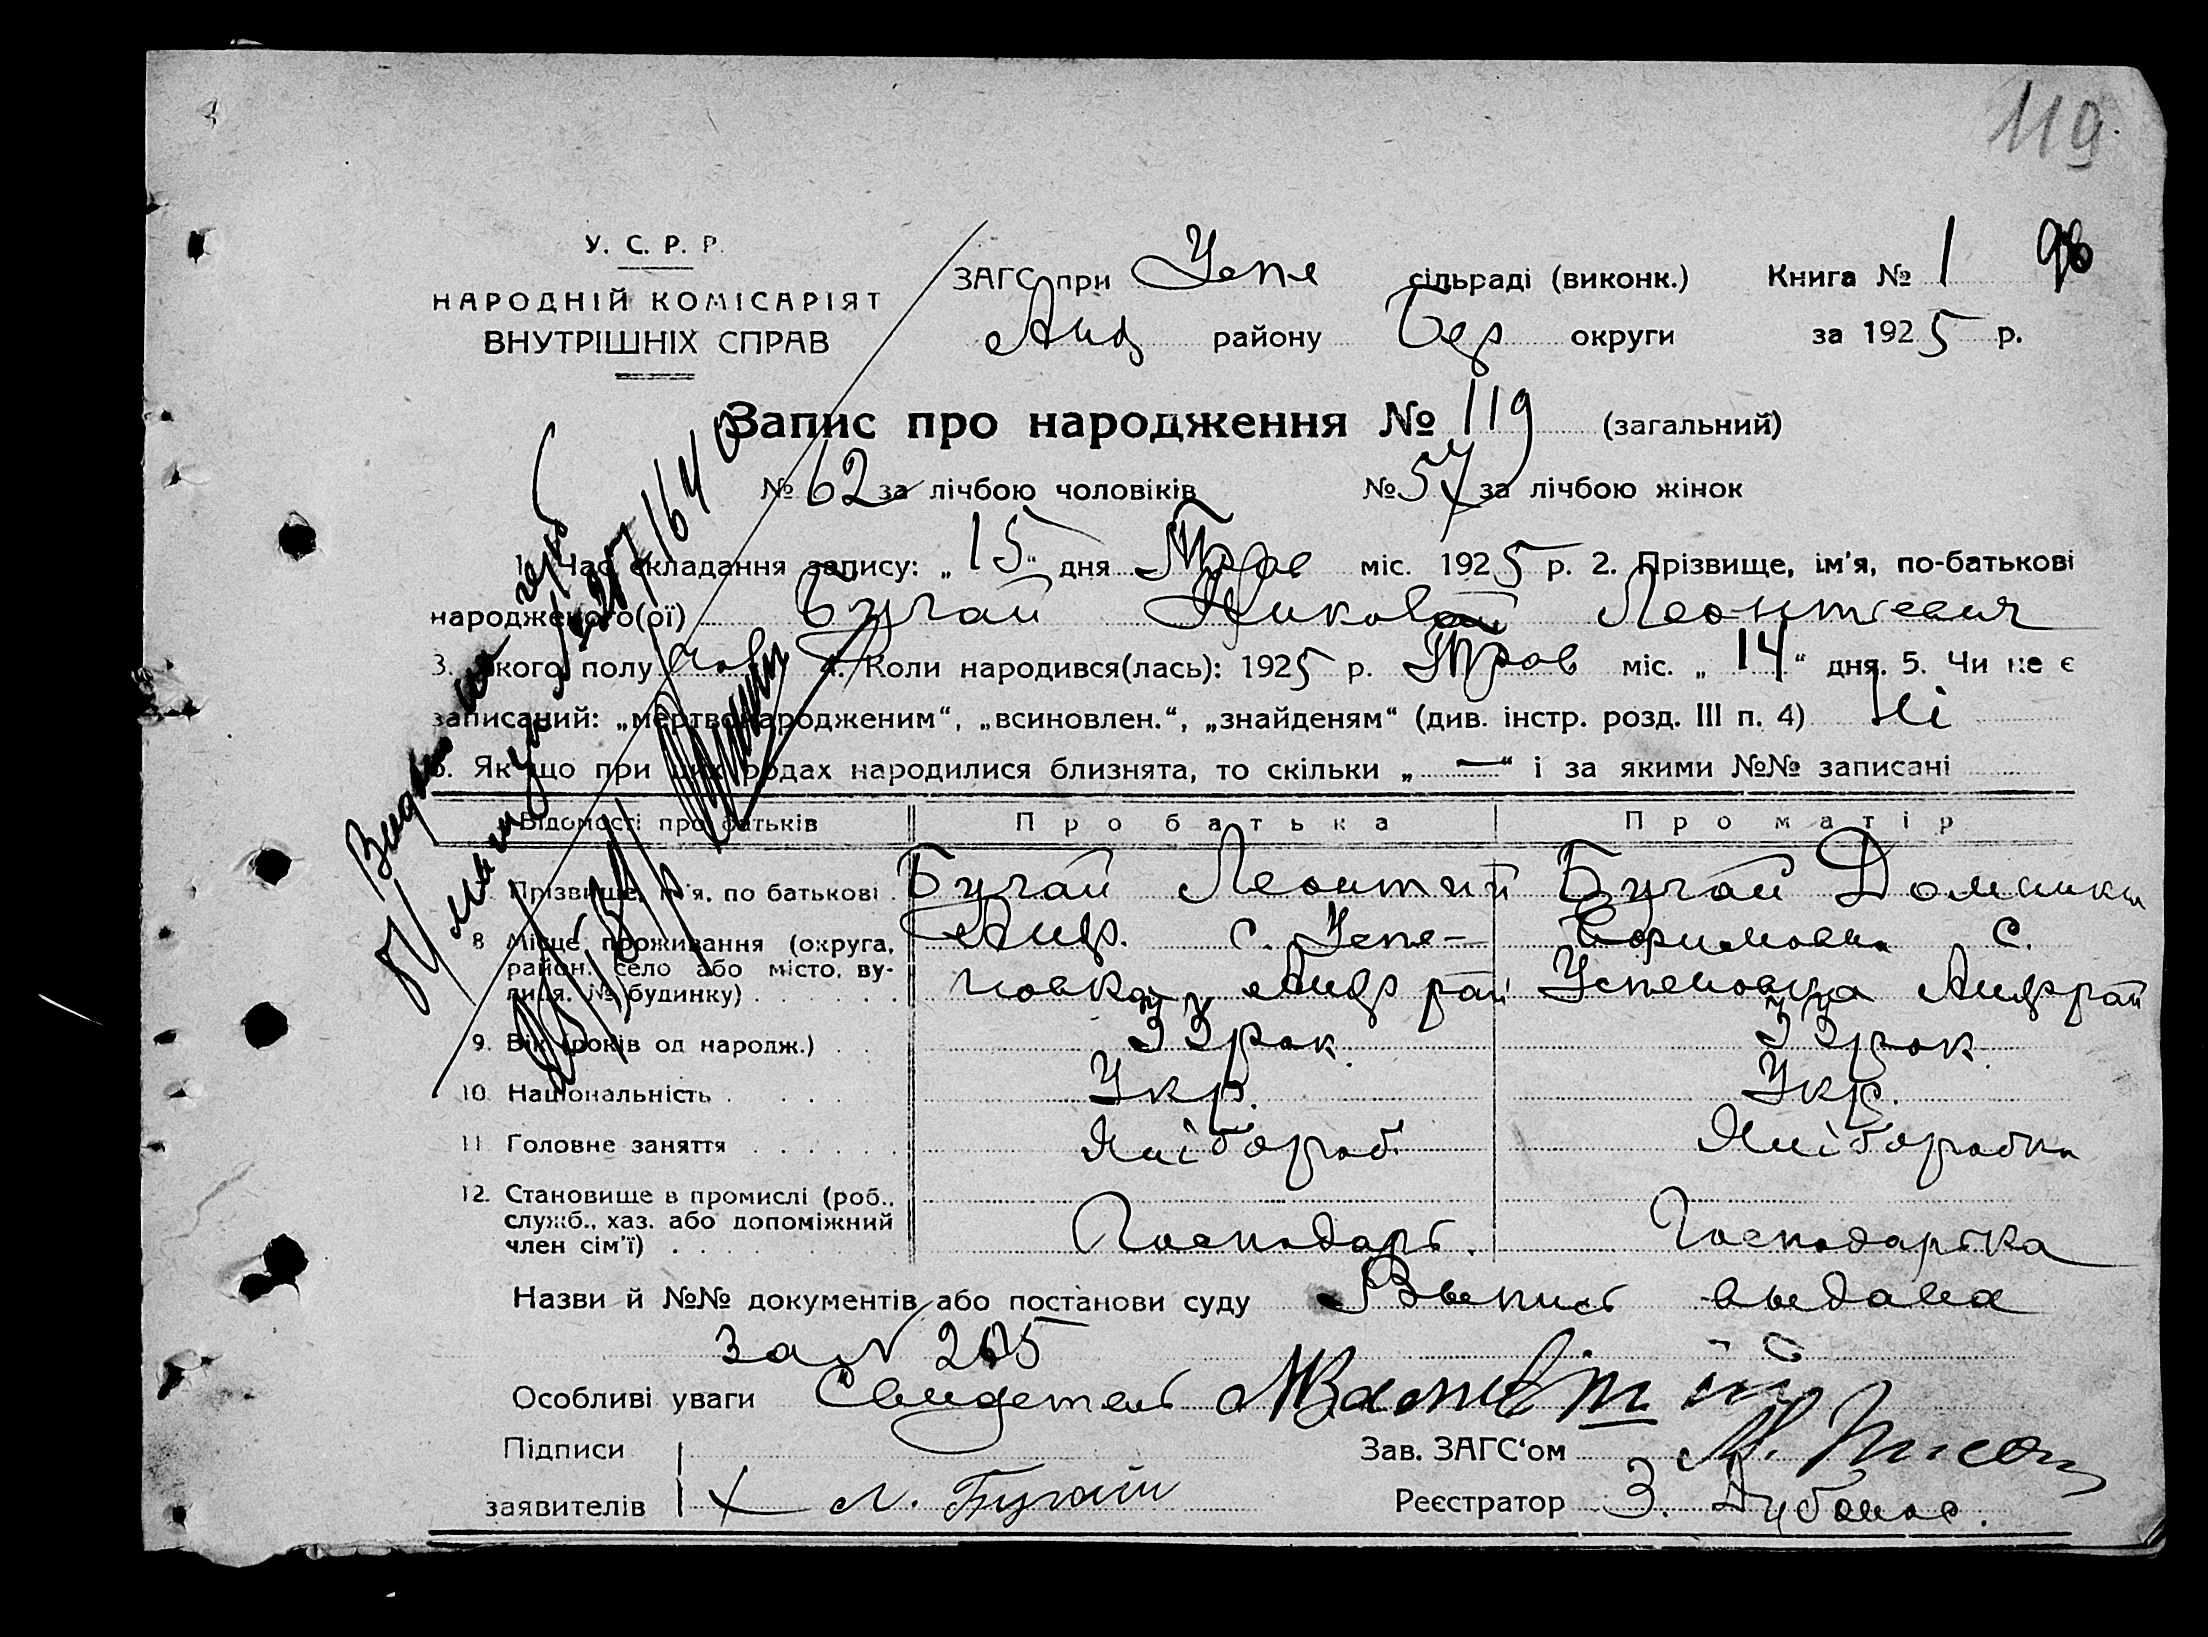 119
У. С. Р. Р.
НАРОДНІЙ КОМІСАРІЯТ
ВНУТРІШНІХ СПРАВ
ЗАГС при Успе сільраді (виконк.) Книга № 1 98
Анд району Бер округи за 1925 р.
Запис про народження № 119 (загальний)
№ 62 за лічбою чоловіків № 57 за лічбою жінок
1. Час складання запису: „15“ дня Трав міс. 1925 р. 2. Прізвище, ім'я, по-батькові
народженого(ої) Бугай Николай Леонтіевич
3. Якого полу чов 4. Коли народився(лась): 1925 р. Трав міс. „14“ дня. 5. Чи не є
записаний: „мертвонародженим“, „всиновлен.“, „знайденям“ (див. інстр. розд. III п. 4) Ні
6. Якщо при цих родах народилися близнята, то скільки „—“ і за якими №№ записані
Відомості про батьків Про батька Про матір
Прізвище, ім'я, по батькові Бугай Леонтий Бугай Домники
8 Місце проживання (округа, Андр. с. Успе- Ефимовна с.
район, село або місто, ву-
лиця, № будинку) новка Андр рай Успеновка Андррай
9. Вік (років од народж.) 33 рок 33 рок
10 Національність Укр. Укр.
11 Головне заняття Хлібороб Хліборобка
12. Становище в промислі (роб.,
служб., хаз. або допоміжний
член сім'ї) Господарь. Господарька
Назви й №№ документів або постанови суду Выпись выдана
за № 265
Особливі уваги Свидетель
Підписи Зав. ЗАГС‘ом
заявителів Л. Бугай Реєстратор З.